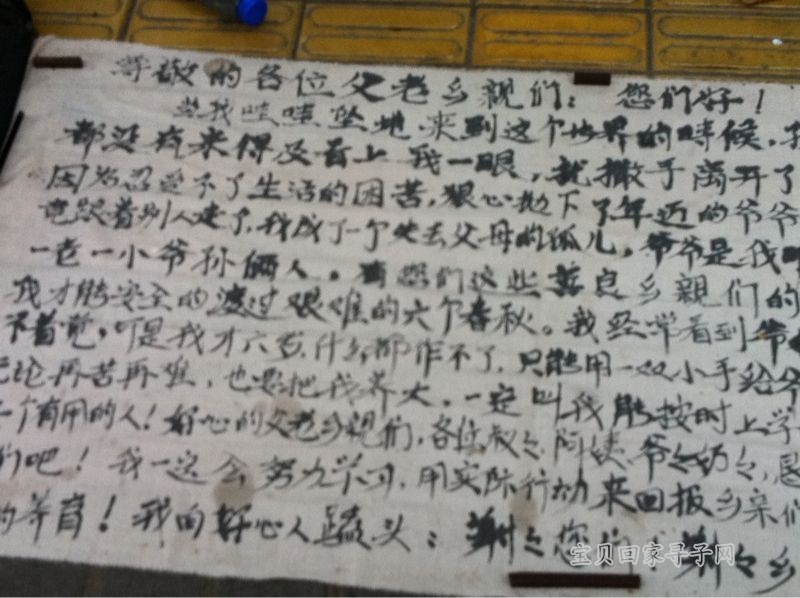 尊敬的各位父老乡亲们：您们好！
当我哇哇坠地来到这个世界的时候，
都没有来得及看上我一眼，就撒手离开了
因为忍受不了生活的困苦，狠心抛下了年迈的爷爷
竟跟着别人走了，我成了一个失去父母的孤儿，爷爷是我
一老一小爷孙俩人。有您们这些善良乡亲们的
我才能安全的渡过艰难的六个春秋。我经常看到爷
不着觉，可是我才六岁，什么都作不了，只能用一双小手给爷
无论再苦再难，也要把我养大，一定叫我能按时上学
个有用的人！好心的父老乡亲们，各位叔々阿姨爷々奶々，恳
们吧！我一定会努力学习，用实际行动来回报乡亲们
的养育！我向好心人磕头：谢々您们！谢々乡
宝贝回家寻子网